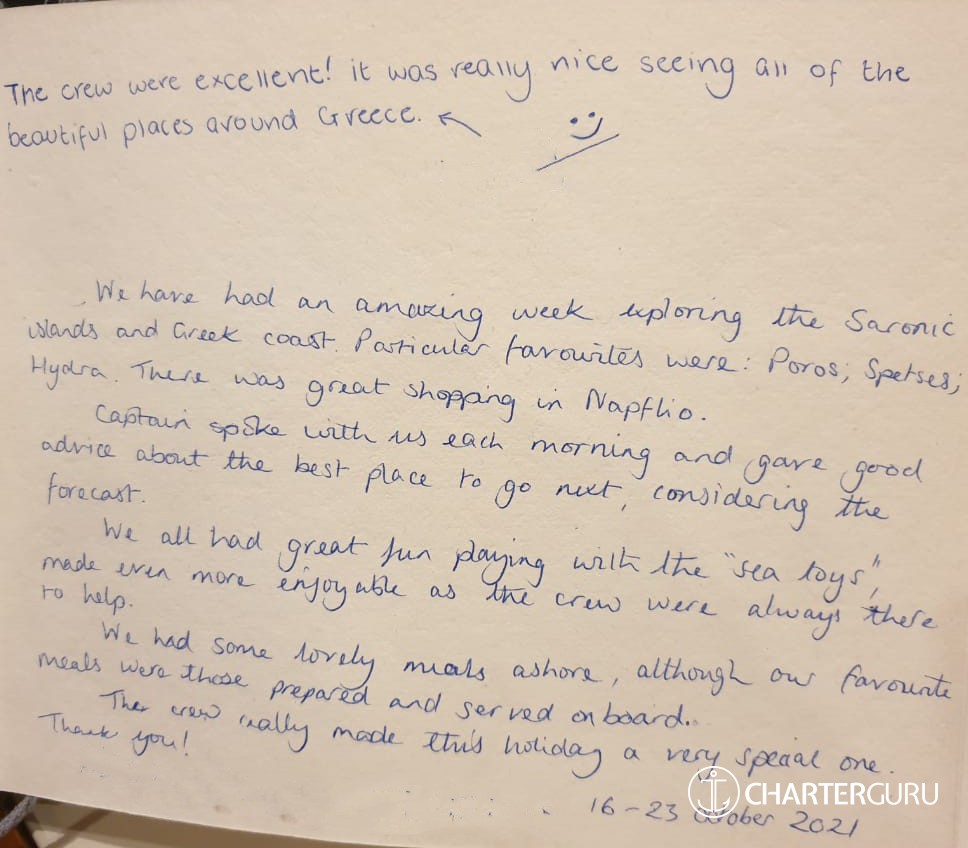 The crew were excellent! it was really nice seeing all of the
beautiful places around Greece.
We have had an amazing week exploring the Saronic
islands and Greek coast. Particular favourites were: Poros; Spetses;
Hydra. There was great shopping in Napflio.
Captain spoke with us each morning and gave good
advice about the best place to go next, considering the
forecast.
We all had great fun playing with the "sea toys",
made even more enjoyable as the crew were always there
to help.
We had some lovely meals ashore, although our favourite
meals were those prepared and served on board.
Ther crew really made this holiday a very special one.
Thank you!
16-23 October 2021
CHARTERGURU